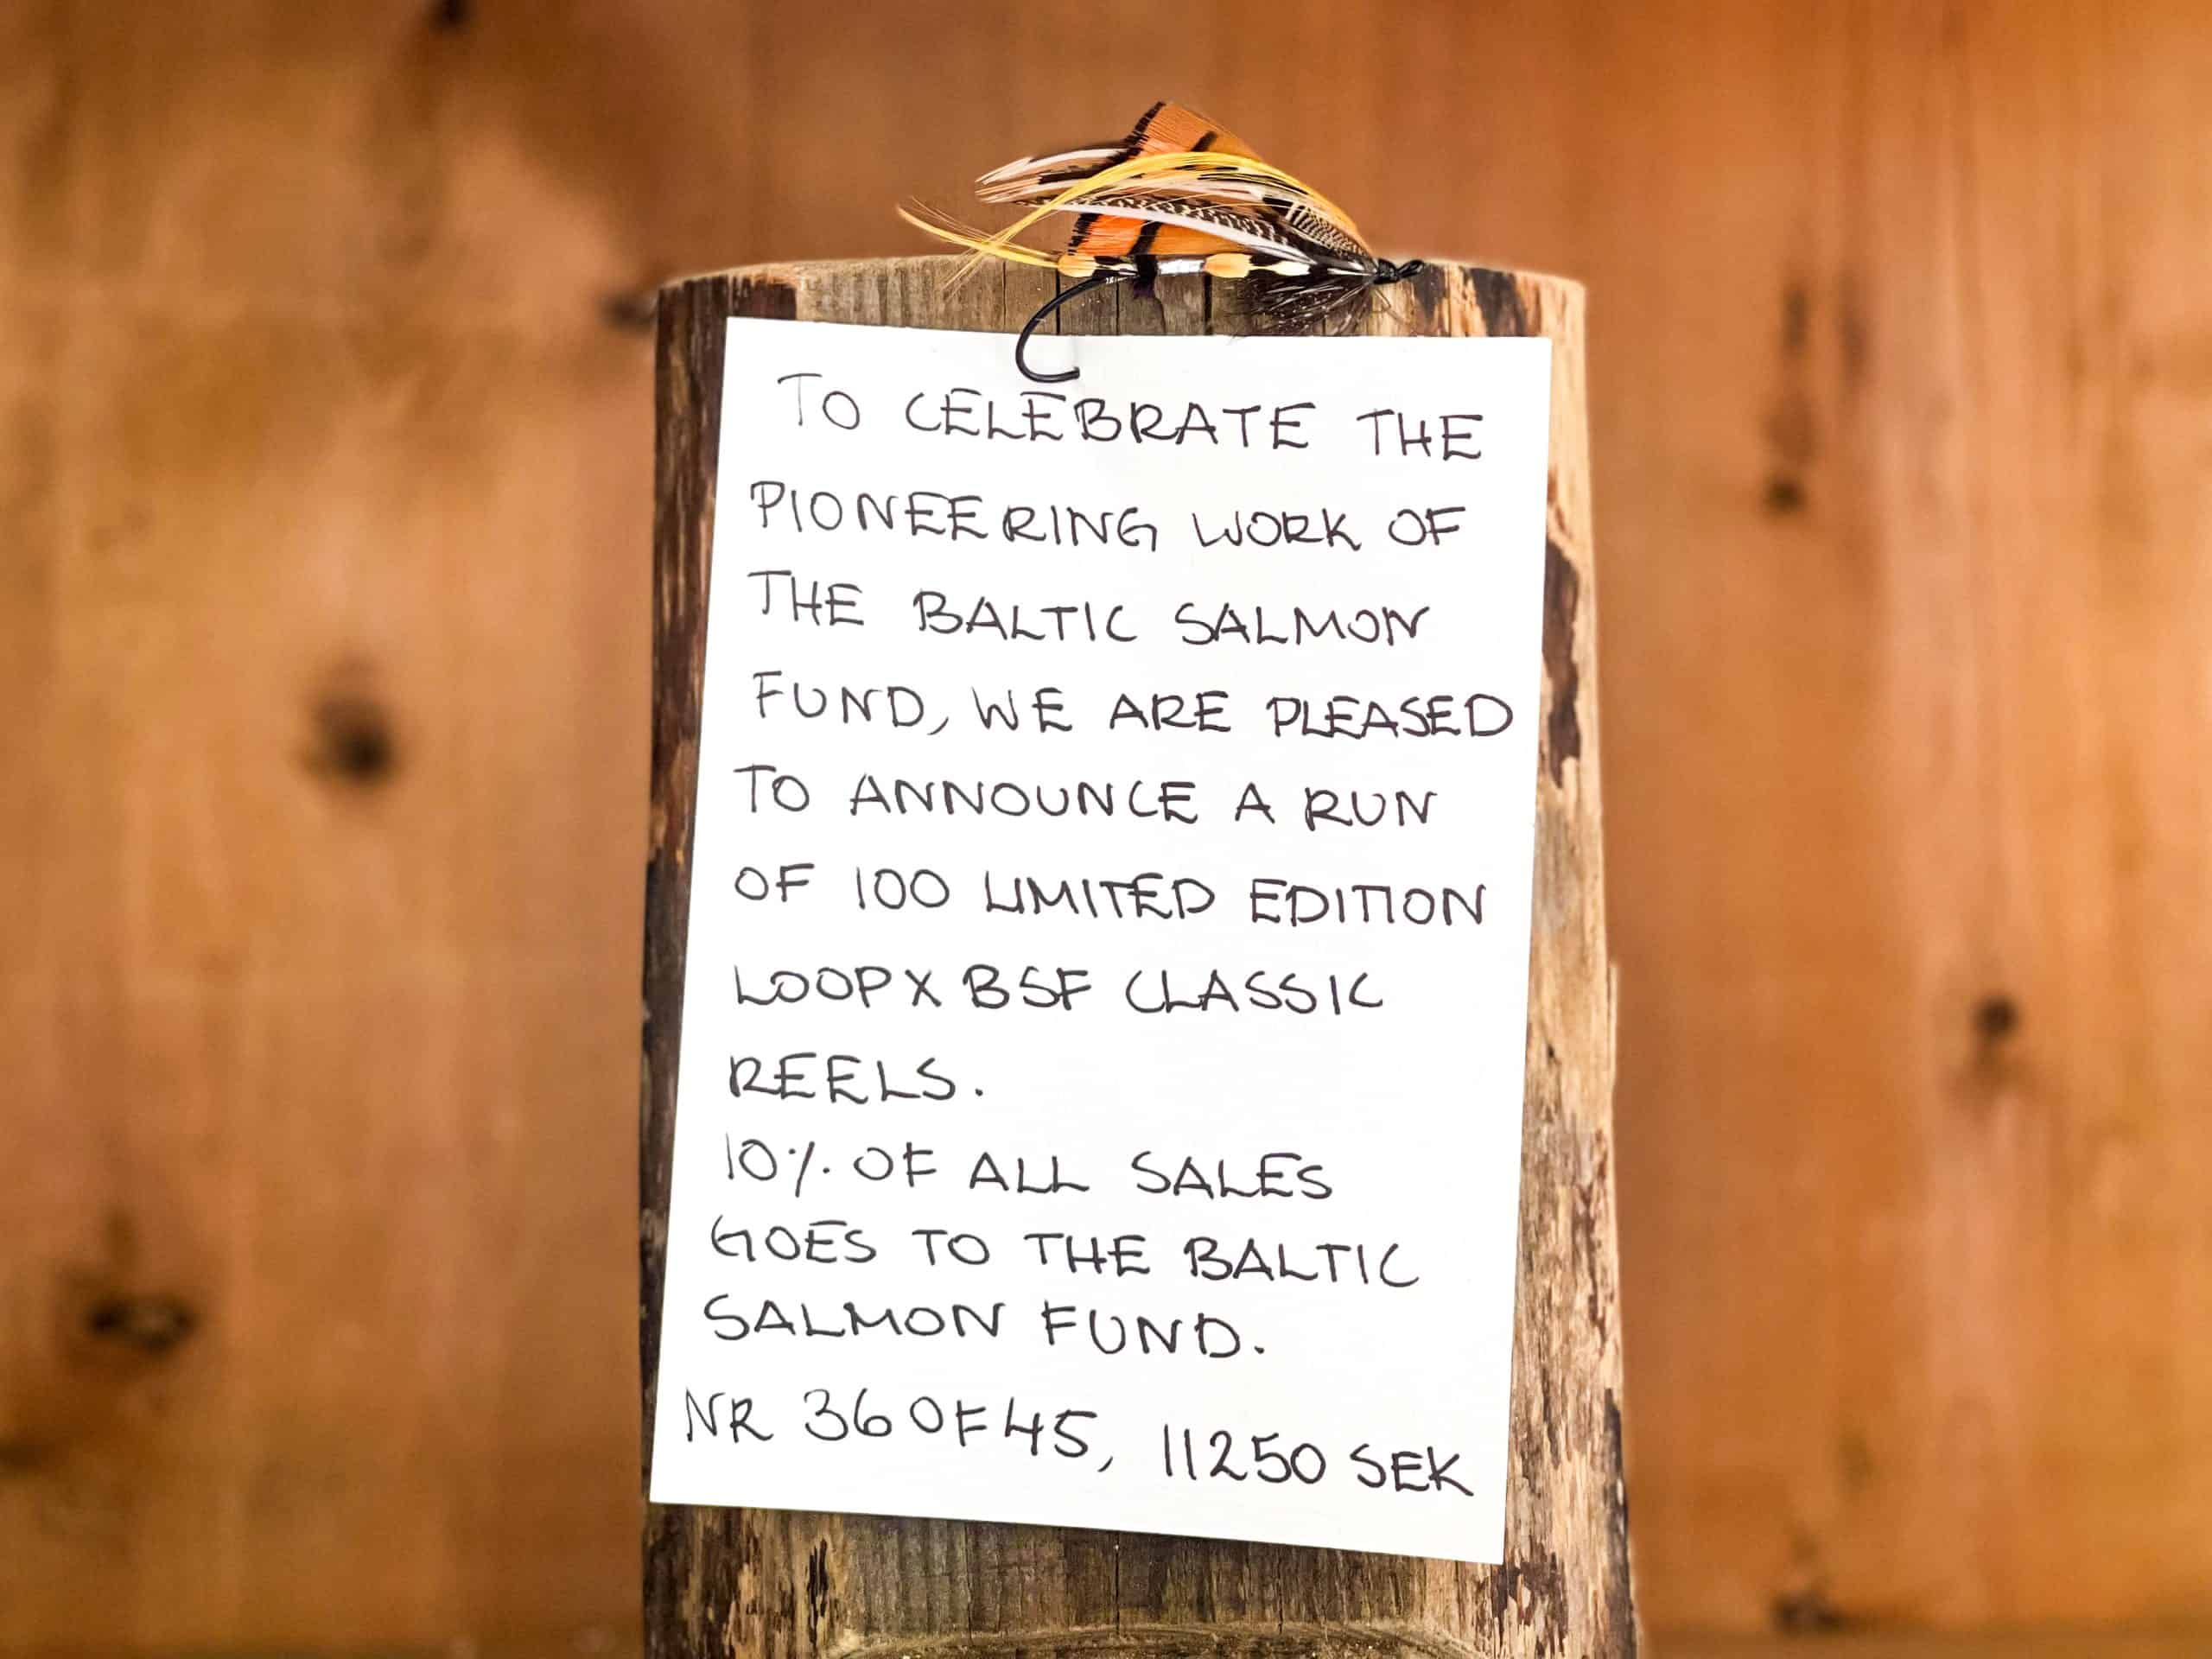 TO CELEBRATE THE
PIONEERING WORK OF
THE BALTIC SALMON
FUND, WE ARE PLEASED
TO ANNOUNCE A RUN
OF 100 LIMITED EDITION
LOOP X BSF CLASSIC
REELS.
10% OF ALL SALES
GOES TO THE BALTIC
SALMON FUND.
NR 36 OF 45, 11250 SEK